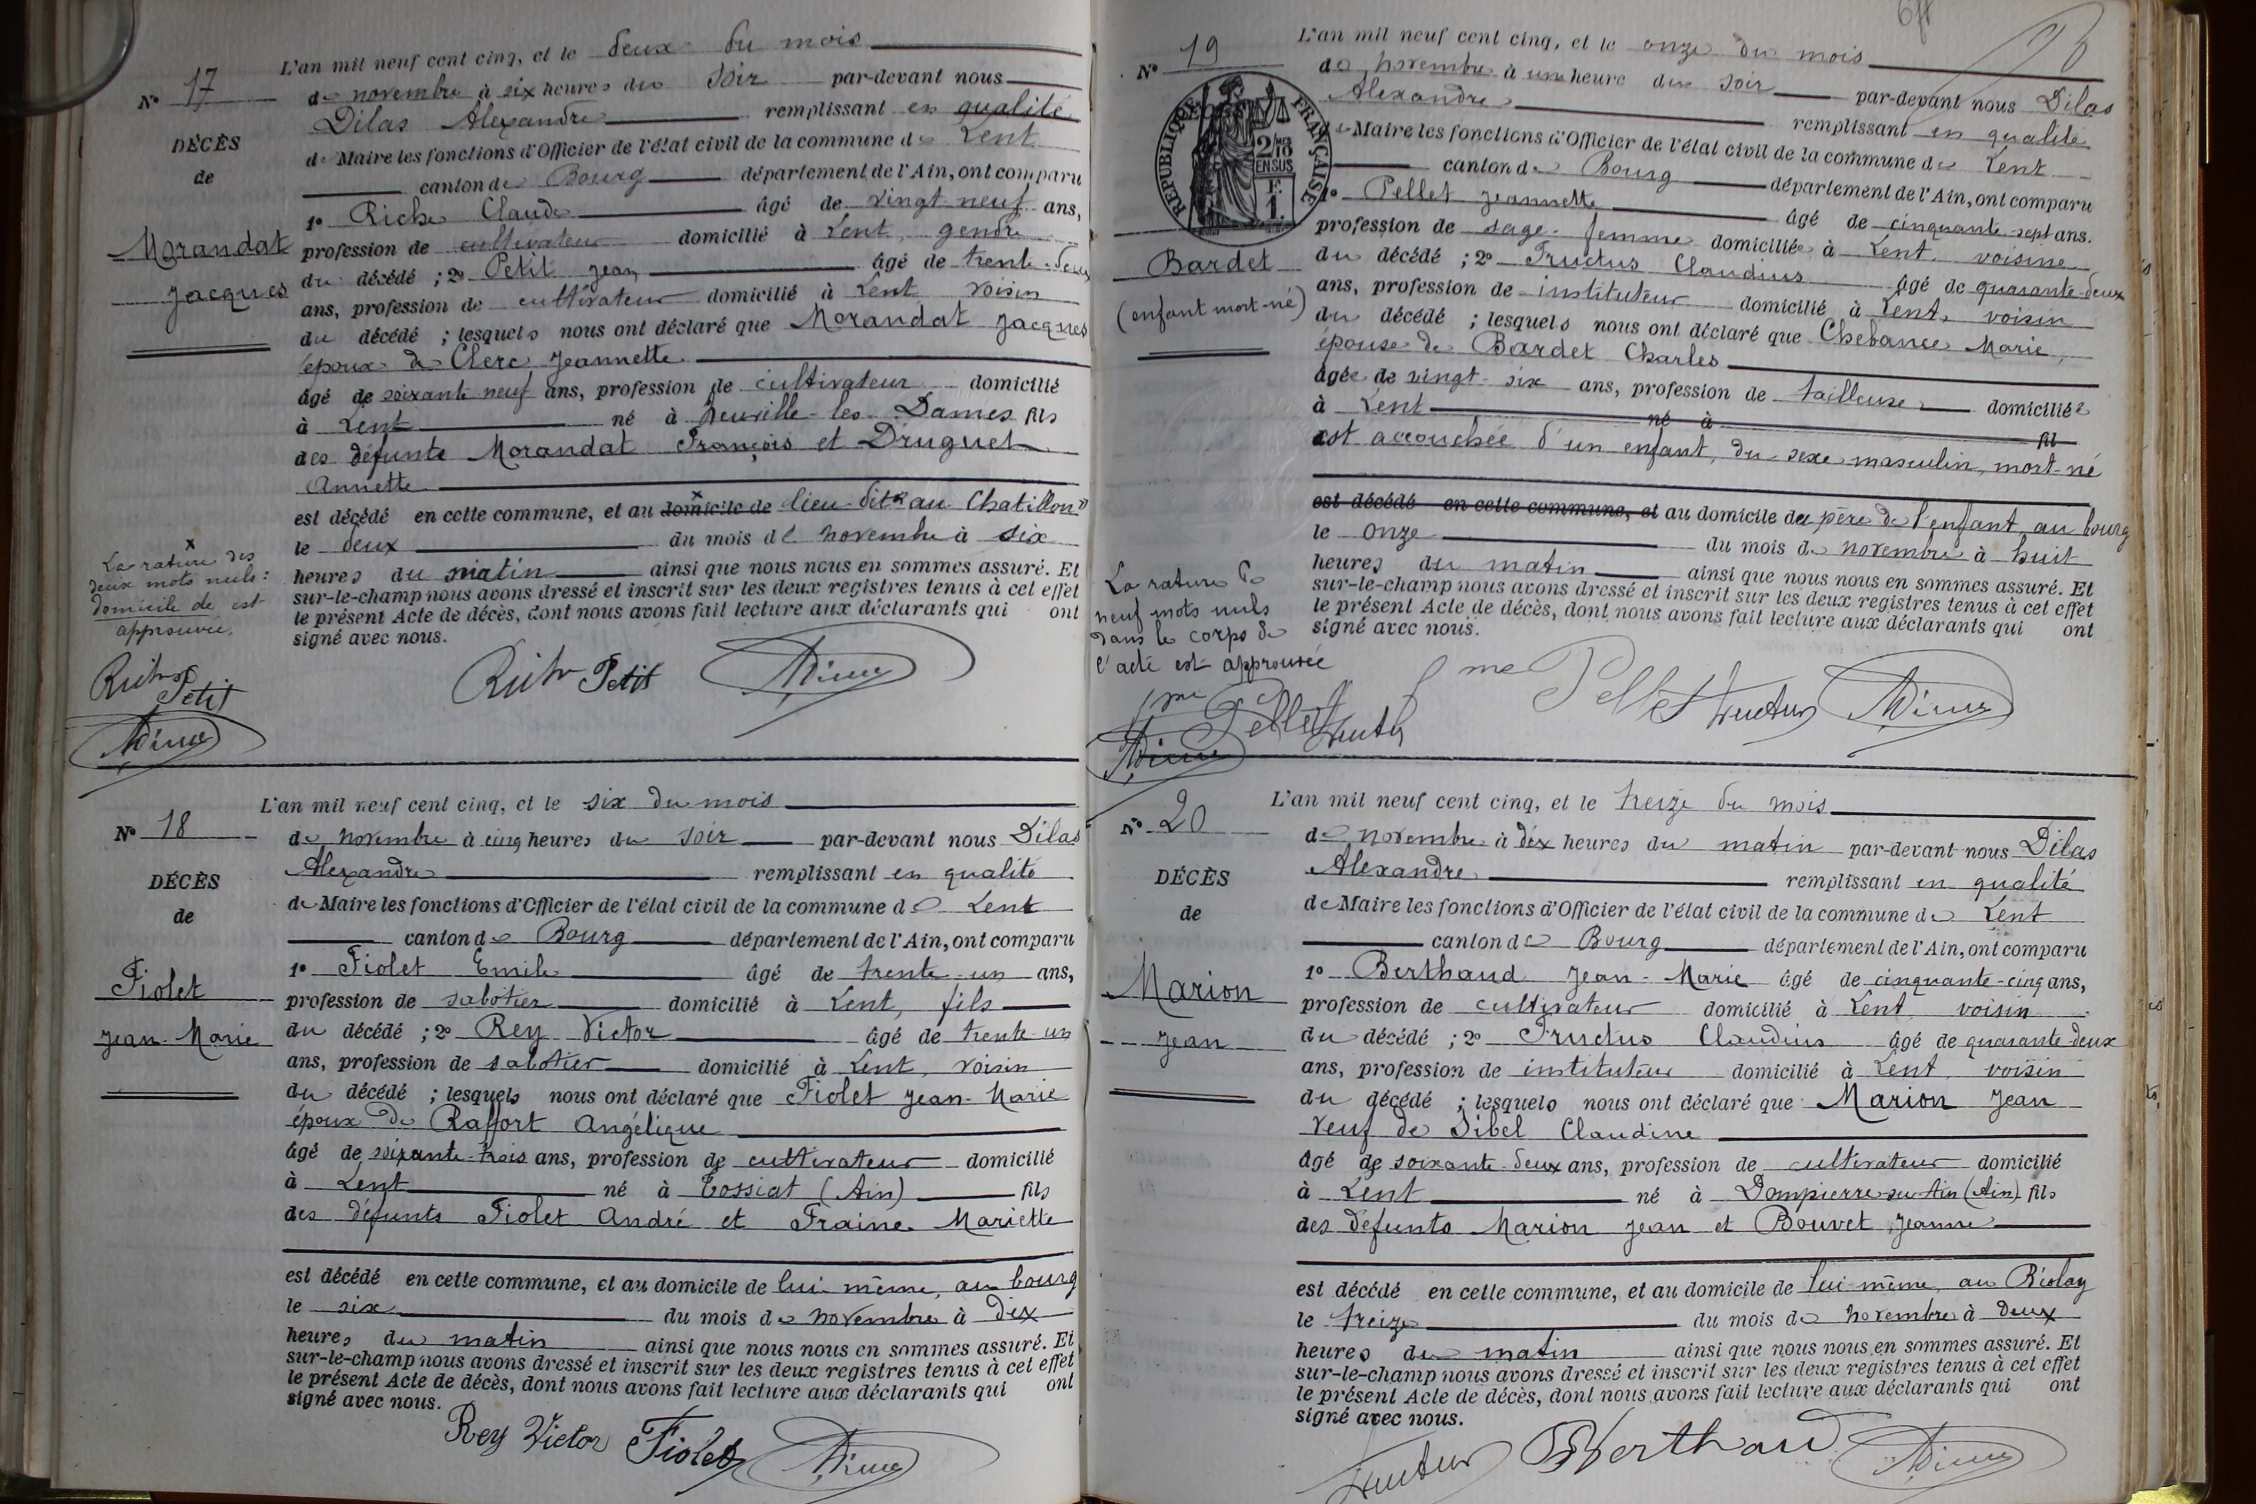 L'an mil neuf cent cinq, et le deux du mois
N° 17
de novembre à six heures du soir par-devant nous
Dilas Alexandre remplissant en qualité
DÉCÈS
de Maire les fonctions d'Officier de l'état civil de la commune de Lent
de
canton de Bourg département de l'Ain, ont comparu
1° Riche Claude âgé de vingt-neuf ans,
Morandat
profession de cultivateur domicilié à Lent, gendre
Jacques
du décédé ; 2° Petit Jean âgé de trente-deux
ans, profession de cultivateur domicilié à Lent voisin
du décédé ; lesquels nous ont déclaré que Morandat Jacques
époux de Clerc Jeannette
âgé de soixante neuf ans, profession de cultivateur domicilié
à Lent né à Neuville-les-Dames fils
des défunts Morandat François et Druguet
Annette
est décédé en cette commune, et au domicile de lieu-dit "au Chatillon"
le deux du mois de novembre à six
heures du matin ainsi que nous nous en sommes assuré. Et
sur-le-champ nous avons dressé et inscrit sur les deux registres tenus à cet effet
le présent Acte de décès, dont nous avons fait lecture aux déclarants qui ont
signé avec nous.
x
La rature des
deux mots nuls :
domicile de est
approuvée.
Petit
Petit
L'an mil neuf cent cinq, et le six du mois
N° 18
de novembre à cinq heures du soir par-devant nous Dilas
Alexandre remplissant en qualité
DÉCÈS
de Maire les fonctions d'Officier de l'état civil de la commune de Lent
de
canton de Bourg département de l'Ain, ont comparu
Fiolet
1° Fiolet Emile âgé de trente-un ans,
profession de sabotier domicilié à Lent, fils
Jean-Marie
du décédé ; 2° Rey Victor âgé de trente-un
ans, profession de sabotier domicilié à Lent, voisin
du décédé ; lesquels nous ont déclaré que Fiolet Jean-Marie
époux de Raffort Angélique
âgé de soixante-trois ans, profession de cultivateur domicilié
à Lent né à Tossiat (Ain) fils
des défunts Fiolet André et Fraine Mariette
est décédé en cette commune, et au domicile de lui-même, au bourg
le six du mois de novembre à dix
heures du matin ainsi que nous nous en sommes assuré. Et
sur-le-champ nous avons dressé et inscrit sur les deux registres tenus à cet effet
le présent Acte de décès, dont nous avons fait lecture aux déclarants qui ont
signé avec nous.
Rey Victor Fiolet
L'an mil neuf cent cinq, et le onze du mois
N° 19
de novembre à une heure du soir par-devant nous Dilas
Alexandre remplissant en qualité
RÉPUBLIQUE FRANÇAISE
2/10 EN SUS
F. 1.
de Maire les fonctions d'Officier de l'état civil de la commune de Lent
canton de Bourg département de l'Ain, ont comparu
1° Pellet Jeannette âgé de cinquante-sept ans.
Bardet
(enfant mort-né)
profession de sage-femme domiciliée à Lent, voisine
du décédé ; 2° Fructus Claudius âgé de quarante-deux
ans, profession de instituteur domicilié à Lent, voisin
du décédé ; lesquels nous ont déclaré que Chebance Marie,
épouse de Bardet Charles
âgée de vingt-six ans, profession de tailleuse domiciliée
à Lent né à fil
est accouchée d'un enfant, du sexe masculin, mort-né
est décédé en cette commune, et au domicile du père de l'enfant, au bourg
le onze du mois de novembre à huit
heures du matin ainsi que nous nous en sommes assuré. Et
sur-le-champ nous avons dressé et inscrit sur les deux registres tenus à cet effet
le présent Acte de décès, dont nous avons fait lecture aux déclarants qui ont
signé avec nous.
La rature de
neuf mots nuls
dans le corps de
l'acte est approuvée
fme Pellet Fructus
fme Pellet Fructus
L'an mil neuf cent cinq, et le treize du mois
N° 20
de novembre à dix heures du matin par-devant nous Dilas
Alexandre remplissant en qualité
DÉCÈS
de Maire les fonctions d'Officier de l'état civil de la commune de Lent
de
canton de Bourg département de l'Ain, ont comparu
Marion
1° Berthaud Jean-Marie âgé de cinquante-cinq ans,
profession de cultivateur domicilié à Lent, voisin
Jean
du décédé ; 2° Fructus Claudius âgé de quarante-deux
ans, profession de instituteur domicilié à Lent, voisin
du décédé ; lesquels nous ont déclaré que Marion Jean
veuf de Sibel Claudine
âgé de soixante-deux ans, profession de cultivateur domicilié
à Lent né à Dompierre-sur-Ain (Ain) fils
des défunts Marion Jean et Bouvet Jeanne
est décédé en cette commune, et au domicile de lui-même, au Riolay
le treize du mois de novembre à deux
heures du matin ainsi que nous nous en sommes assuré. Et
sur-le-champ nous avons dressé et inscrit sur les deux registres tenus à cet effet
le présent Acte de décès, dont nous avons fait lecture aux déclarants qui ont
signé avec nous.
Fructus Berthaud